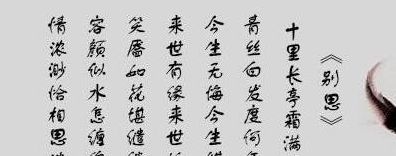 《别思》
十里长亭霜满
青丝白发度何年
今生无悔今生
来世有缘来世
笑靥如花堪缱绻
容颜似水怎缠绵
情浓渺恰相思